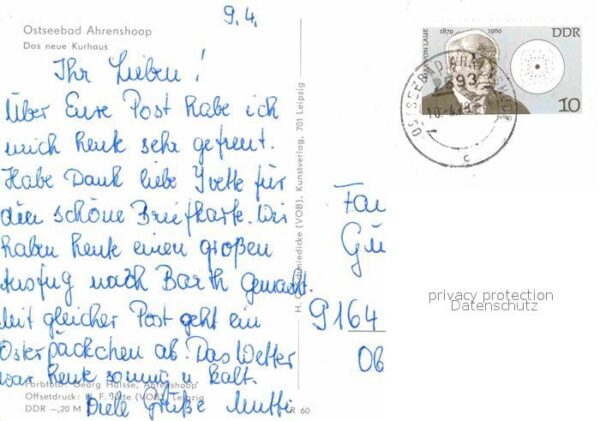 9.4.
Ostseebad Ahrenshoop
Das neue Kurhaus
Ihr Lieben!
Über Eure Post habe ich
mich heute sehr gefreut.
Habe Dank liebe Yvette für
die schöne Briefkarte. Wir
haben heute einen großen
Ausflug nach Barth gemacht.
Mit gleicher Post geht ein
Osterpäckchen ab. Das Wetter
war heute sonnig u. kalt.
Viele Grüße Mutti
Farbfoto: Georg Hülsse, Ahrenshoop
Offsetdruck: F.
(VOB), Leipzig
DDR –,20 M
R 60
(VOB), Kunstverlag, 701 Leipzig
VON LAUE 1879 1960
DDR
10
OSTSEEBAD AHRENSHOOP
593
c
Fa
9164
Ob
privacy protection
Datenschutz